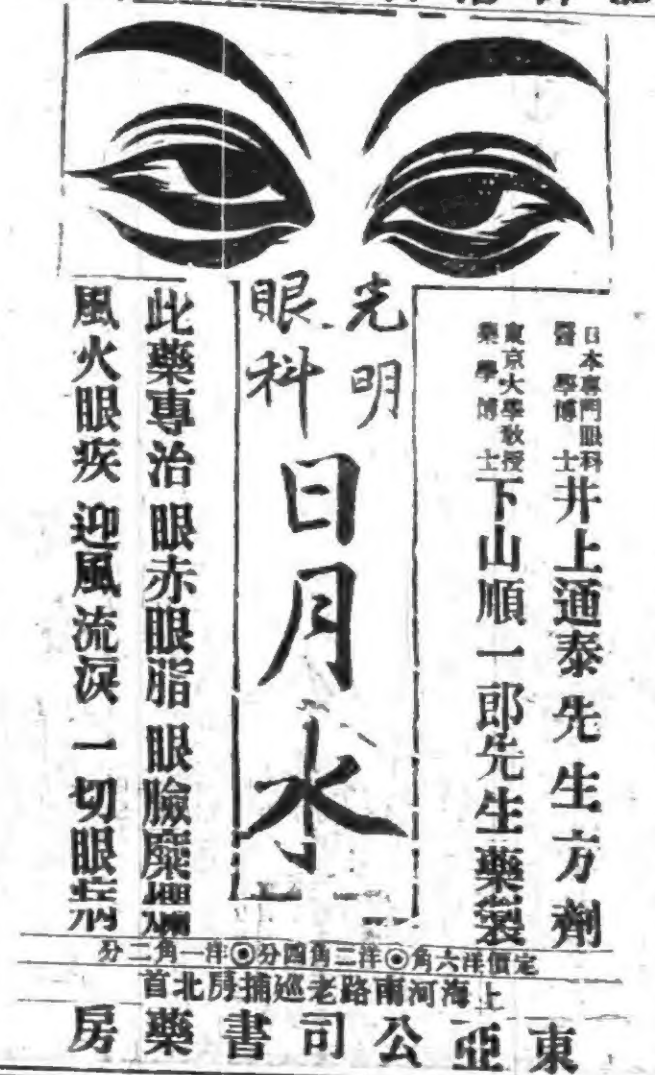 日本專門眼科
醫學博士
井上通泰先生方劑
東京大學教授
藥學博士
下山順一郎先生藥製
光明
眼科
日月水
此藥專治 眼赤眼脂 眼臉糜爛
風火眼疾 迎風流淚 一切眼病
定價洋六角◉洋二角四分◉洋一角二分
上海河南路老巡捕房北首
東亞公司書藥房